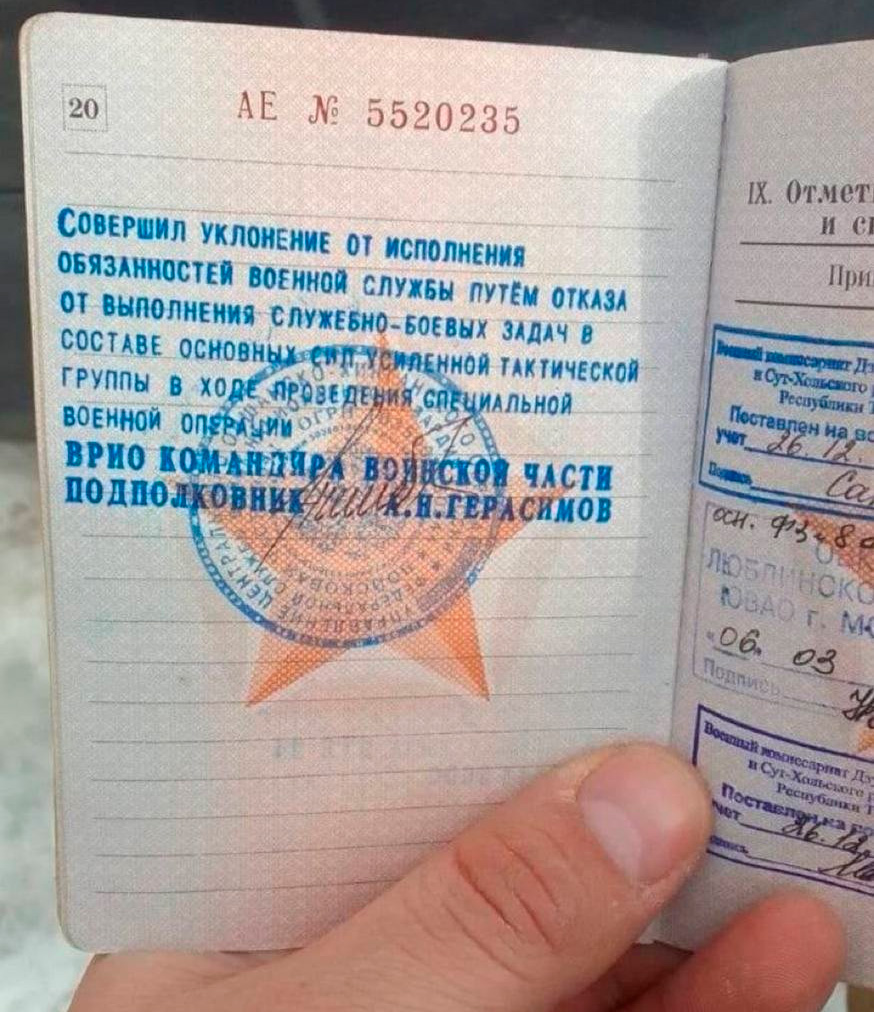 20
АЕ № 5520235
СОВЕРШИЛ УКЛОНЕНИЕ ОТ ИСПОЛНЕНИЯ
ОБЯЗАННОСТЕЙ ВОЕННОЙ СЛУЖБЫ ПУТЁМ ОТКАЗА
ОТ ВЫПОЛНЕНИЯ СЛУЖЕБНО-БОЕВЫХ ЗАДАЧ В
СОСТАВЕ ОСНОВНЫХ СИЛ УСИЛЕННОЙ ТАКТИЧЕСКОЙ
ГРУППЫ В ХОДЕ ПРОВЕДЕНИЯ СПЕЦИАЛЬНОЙ
ВОЕННОЙ ОПЕРАЦИИ
ВРИО КОМАНДИРА ВОИНСКОЙ ЧАСТИ
ПОДПОЛКОВНИК А.Н.ГЕРАСИМОВ
IX. Отмет
и с
При
Военный комиссариат Дз
и Сут-Хольского р
Республики Т
Поставлен на во
учет 26. 12.
Подпись
осн. ФЗ-
ЛЮБЛИНСКО
ЮВАО г. МО
"06. 03
Подпись
Военный комиссариат Дз
и Сут-Хольского р
Республики Т
Поставлен на во
26. 12.